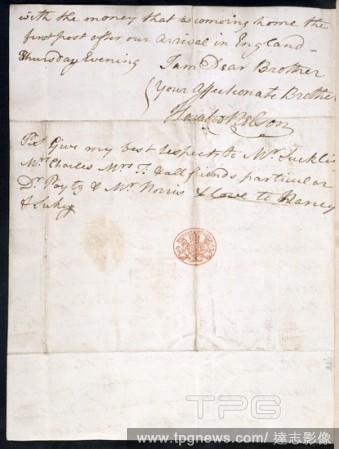 with the money that is coming home the
first post after our arrival in England -
Thursday Evening I am Dear Brother
Your Affectionate Brother
Horatio Nelson
PS. Give my best respects to Mr. Suckling
Mrs. Charles Mrs. S. & all friends particular
Dr. Poyntz & Mr. Norris & love to Nancy
& Sukey
TPG
www.tpgnews.com/ 達志影像